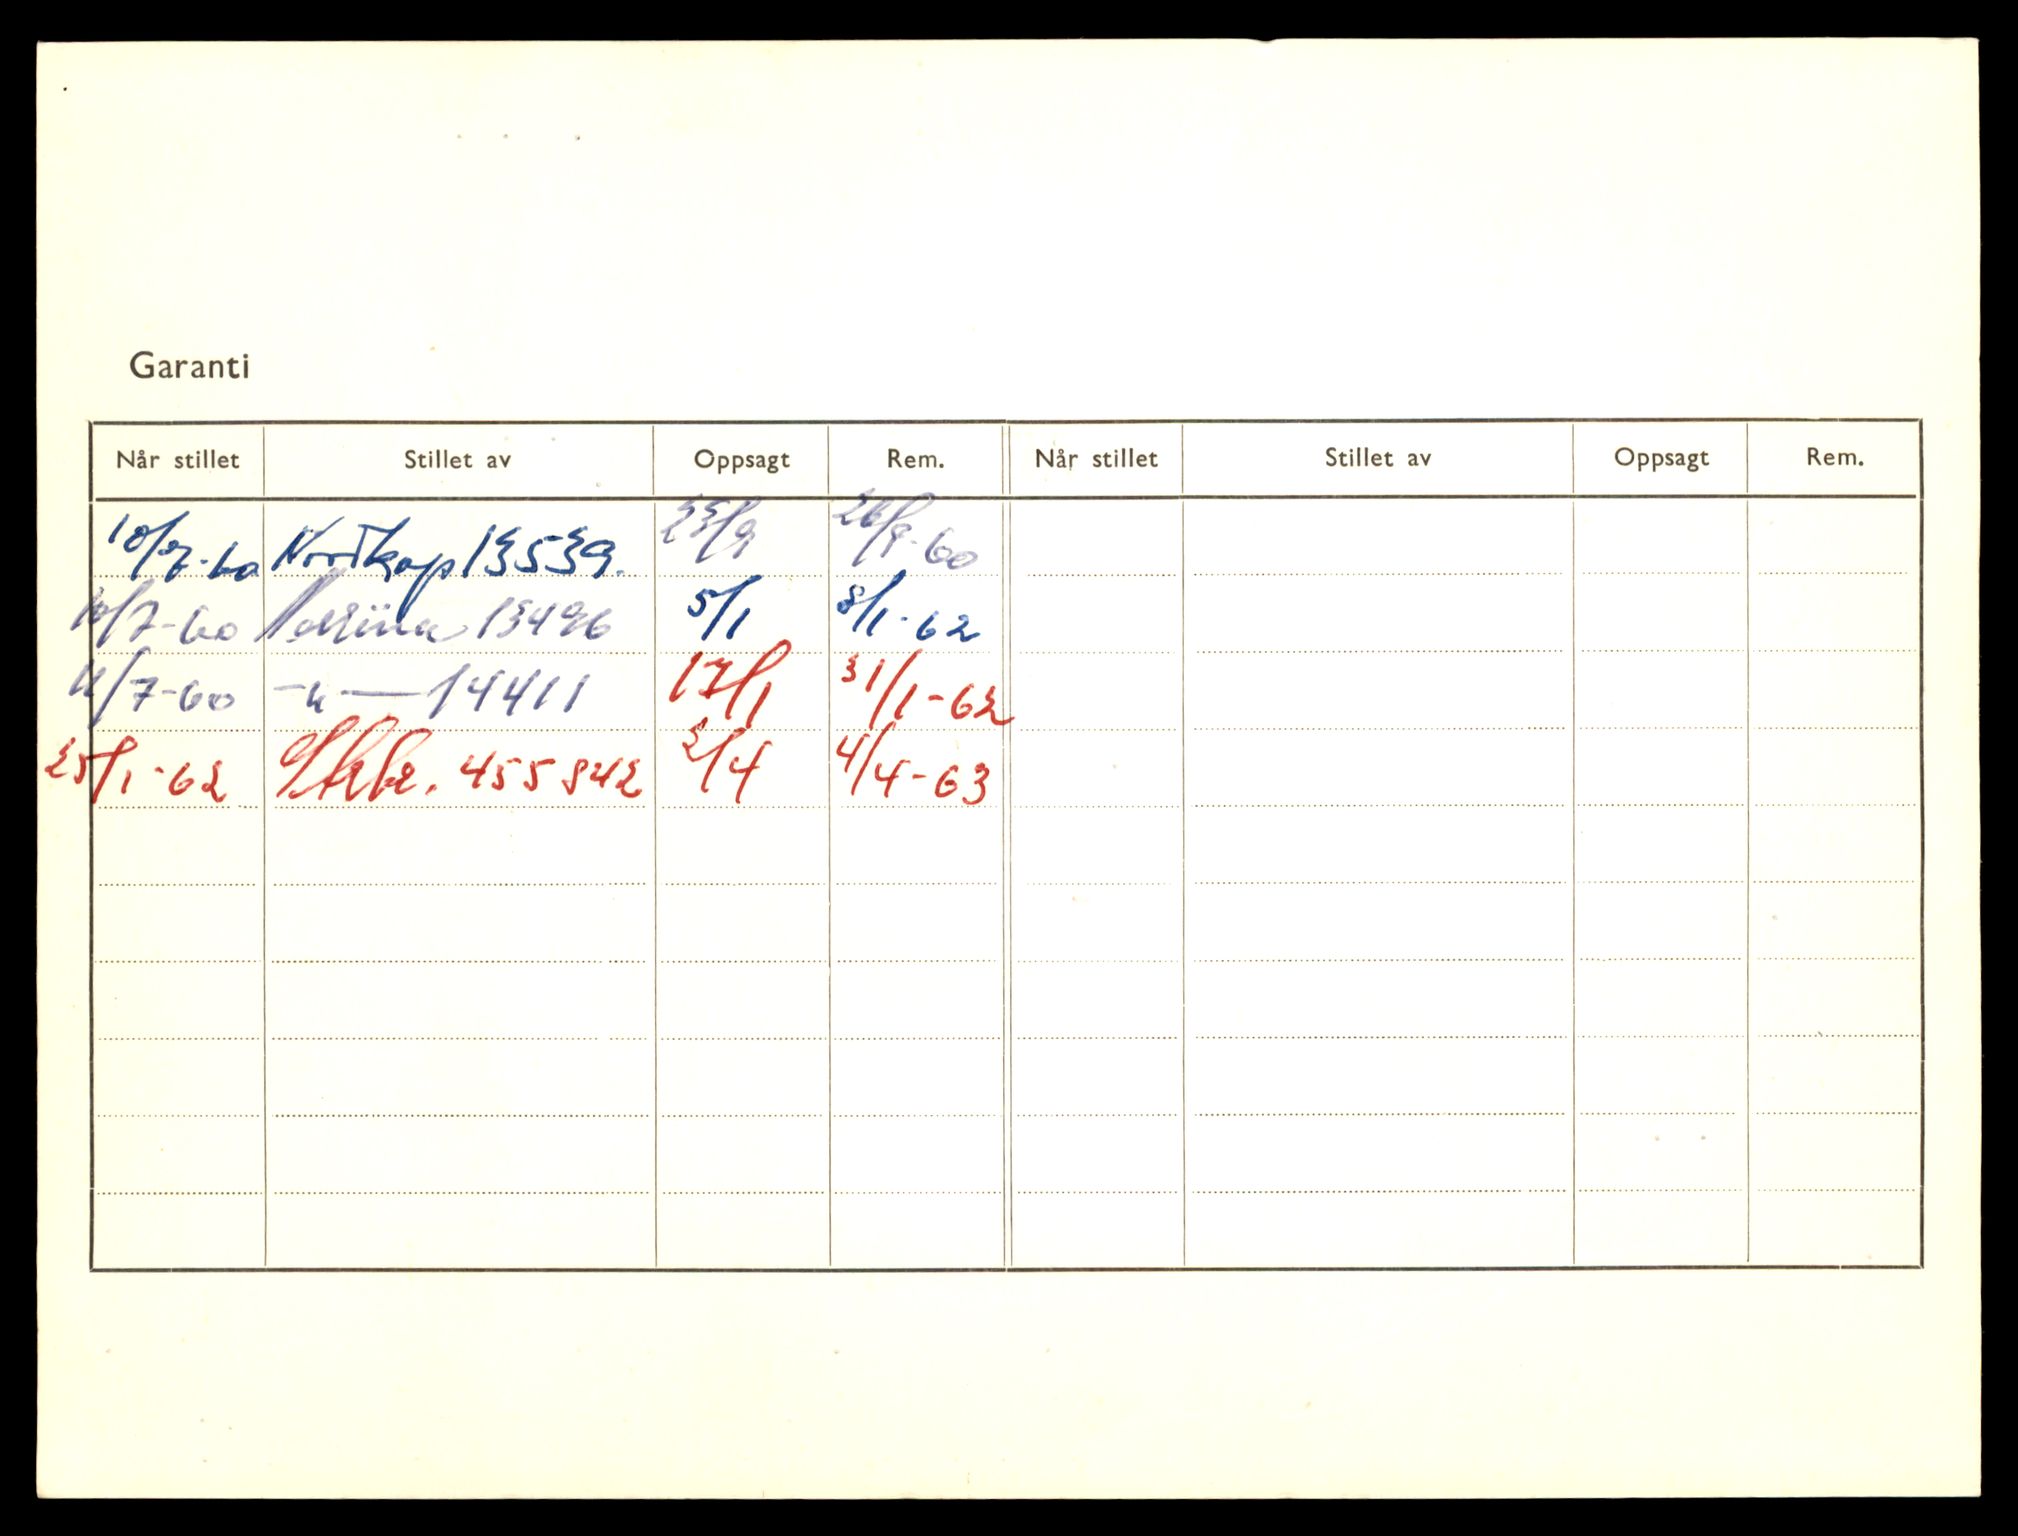 Garanti
Når stillet Stillet av Oppsagt Rem. Når stillet Stillet av Oppsagt Rem.
10/7-60 Nordkap 13539. 23/9 26/9-60
10/7-60 13496 5/1 8/1-62
11/7-60 -"- 14411 17/1 31/1-62
25/1-62 455842 2/4 4/4-63